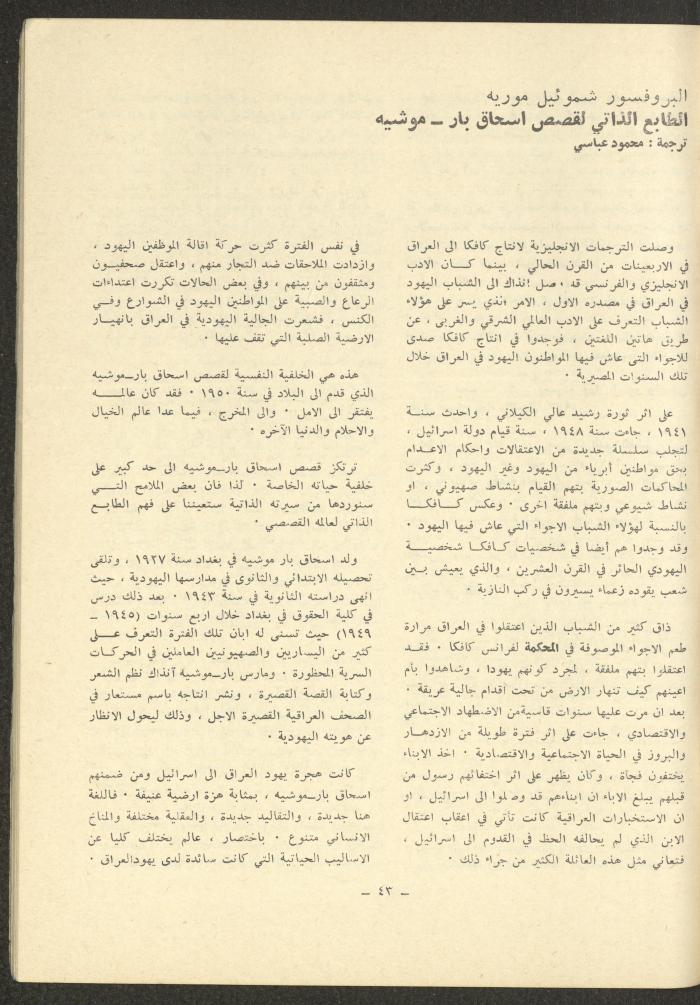 البروفسور شموئيل موريه
الطابع الذاتي لقصص اسحاق بار ــ موشيه
ترجمة : محمود عباسي
وصلت الترجمات الانجليزية لانتاج كافكا الى العراق
في الاربعينات من القرن الحالي ، بينما كــان الادب
الانجليزي والفرنسي قد وصل آنذاك الى الشباب اليهود
في العراق في مصدره الاول ، الامر الذي يسر على هؤلاء
الشباب التعرف على الادب العالمي الشرقي والغربي ، عن
طريق هاتين اللغتين ، فوجدوا في انتاج كافكا صدى
للاجواء التي عاش فيها المواطنون اليهود في العراق خلال
تلك السنوات المصيرية ·
على اثر ثورة رشيد عالي الكيلاني ، واحدث سنــة
١٩٤١ ، جاءت سنة ١٩٤٨ ، سنة قيام دولة اسرائيل ،
لتجلب سلسلة جديدة من الاعتقالات واحكام الاعــدام
بحق مواطنين أبرياء من اليهود وغير اليهود ، وكثرت
المحاكمات الصورية بتهم القيام بنشاط صهيوني ، او
نشاط شيوعي وبتهم ملفقة اخرى · وعكس كــافكــا
بالنسبة لهؤلاء الشباب الاجواء التي عاش فيها اليهود ·
وقد وجدوا هم أيضا في شخصيات كـافكـا شخصيــة
اليهودي الحائر في القرن العشرين ، والذي يعيش بــين
شعب يقوده زعماء يسيرون في ركب النازية ·
ذاق كثير من الشباب الذين اعتقلوا في العراق مرارة
طعم الاجواء الموصوفة في المحكمة لفرانس كافكا · فقــد
اعتقلوا بتهم ملفقة ، لمجرد كونهم يهودا ، وشاهدوا بام
اعينهم كيف تنهار الارض من تحت أقدام جالية عريقة ·
بعد ان مرت عليها سنوات قاسيةمن الاضطهاد الاجتماعي
والاقتصادي ، جاءت على اثر فترة طويلة من الازدهــار
والبروز في الحياة الاجتماعية والاقتصادية · اخذ الابناء
يختفون فجاة ، وكان يظهر على اثر اختفائهم رسول من
قبلهم يبلغ الاباء ان ابناءهم قد وصلوا الى اسرائيل ، او
ان الاستخبارات العراقية كانت تأتي في اعقاب اعتقال
الابن الذي لم يحالفه الحظ في القدوم الى اسرائيل ،
فتعاني مثل هذه العائلة الكثير من جراء ذلك ·
في نفس الفترة كثرت حركة اقالة الموظفين اليهود ،
وازدادت الملاحقات ضد التجار منهم ، واعتقل صحفيــون
ومثقفون من بينهم ، وفي بعض الحالات تكررت اعتداءات
الرعاع والصبية على المواطنين اليهود في الشوارع وفــي
الكنس ، فشعرت الجالية اليهودية في العراق بانهيــار
الارضية الصلبة التي تقف عليها ·
هذه هي الخلفية النفسية لقصص اسحاق بارــموشيه
الذي قدم الى البلاد في سنة ١٩٥٠ · فقد كان عالمــــه
يفتقر الى الامل · والى المخرج ، فيما عدا عالم الخيال
والاحلام والدنيا الآخره ·
ترتكز قصص اسحاق بارــموشيه الى حد كبير على
خلفية حياته الخاصة · لذا فان بعض الملامح التــــي
سنوردها من سيرته الذاتية ستعيننا على فهم الطابــع
الذاتي لعالمه القصصي ·
ولد اسحاق بار موشيه في بغداد سنة ١٩٢٧ ، وتلقى
تحصيله الابتدائي والثانوى في مدارسها اليهودية ، حيث
انهى دراسته الثانوية في سنة ١٩٤٣ · بعد ذلك درس
في كلية الحقوق في بغداد خلال اربع سنوات (١٩٤٥ ــ
١٩٤٩) حيث تسنى له ابان تلك الفترة التعرف علــى
كثير من اليساريين والصهيونيين العاملين في الحركات
السرية المحظورة · ومارس بارــموشيه آنذاك نظم الشعر
وكتابة القصة القصيرة ، ونشر انتاجه باسم مستعار في
الصحف العراقية القصيرة الاجل ، وذلك ليحول الانظار
عن هويته اليهودية ·
كانت هجرة يهود العراق الى اسرائيل ومن ضمنهم
اسحاق بارــموشيه ، بمثابة هزة ارضية عنيفة · فاللغة
هنا جديدة ، والتقاليد جديدة ، والعقلية مختلفة والمناخ
الانساني متنوع · باختصار ، عالم يختلف كليا عن
الاساليب الحياتية التي كانت سائدة لدى يهودالعراق ·
ــ ٤٣ ــ